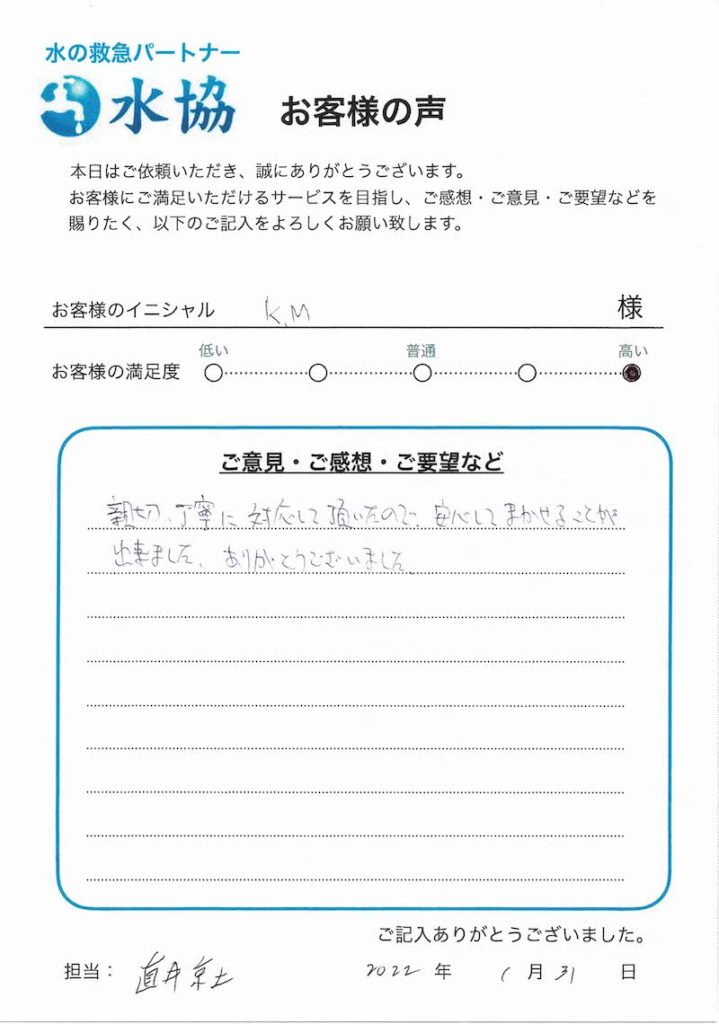 水の救急パートナー
水協 お客様の声
本日はご依頼いただき、誠にありがとうございます。
お客様にご満足いただけるサービスを目指し、ご感想・ご意見・ご要望などを
賜りたく、以下のご記入をよろしくお願い致します。
お客様のイニシャル K.M 様
低い 普通 高い
お客様の満足度
ご意見・ご感想・ご要望など
親切、丁寧に対応して頂いたので、安心してまかせることが
出来ました、ありがとうございました。
ご記入ありがとうございました。
担当: 直井 2022 年 1 月 31 日